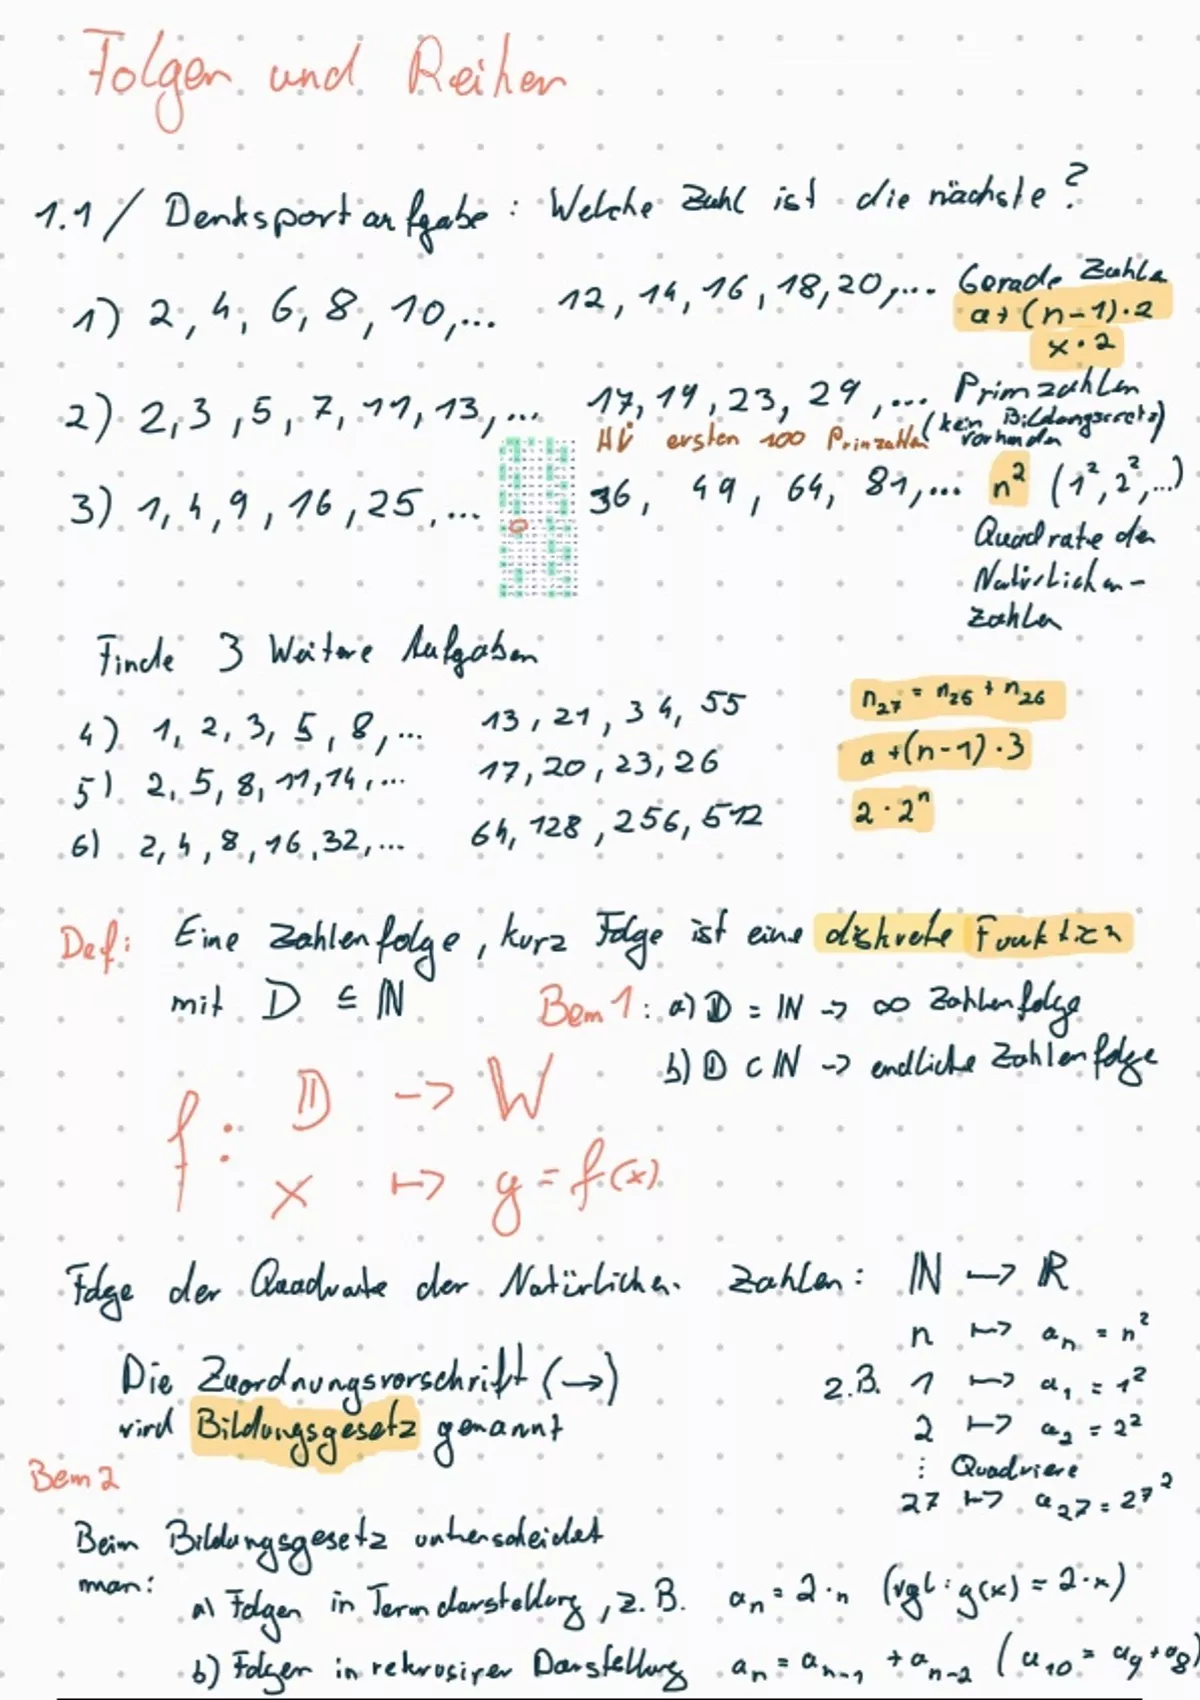 Folgen und Reihen
1.1/ Denksportaufgabe : Welche Zahl ist die nächste?
1) 2, 4, 6, 8, 10,... 12, 14, 16, 18, 20,... Gerade Zahle
a + (n-1)·2
x · 2
2) 2, 3, 5, 7, 11, 13,... 17, 19, 23, 29,... Primzahlen
(kein Bildungsgesetz)
HÜ ersten 100 Primzahlen vorhanden
3) 1, 4, 9, 16, 25,... 36, 49, 64, 81,... n² (1², 2²,...)
Quadrate der
Natürlichen-
zahlen
Finde 3 Weitere Aufgaben
4) 1, 2, 3, 5, 8,... 13, 21, 34, 55 n₂₇ = n₂₅ + n₂₆
5) 2, 5, 8, 11, 14,... 17, 20, 23, 26 a + (n-1)·3
6) 2, 4, 8, 16, 32,... 64, 128, 256, 512 2 · 2ⁿ
Def: Eine Zahlenfolge, kurz Folge ist eine diskrete Funktion
mit D ⊆ ℕ Bem 1: a) D = ℕ -> ∞ Zahlenfolge
b) D ⊂ ℕ -> endliche Zahlenfolge
f: D -> W
x ↦ y = f(x)
Folge der Quadrate der Natürlichen Zahlen: ℕ -> ℝ
n ↦ aₙ = n²
Die Zuordnungsvorschrift (→) z.B. 1 ↦ a₁ = 1²
wird Bildungsgesetz genannt 2 ↦ a₂ = 2²
⋮ Quadriere
Bem 2 27 ↦ a₂₇ = 27²
Beim Bildungsgesetz unterscheidet
man:
a) Folgen in Termdarstellung, z.B. aₙ = 2·n (vgl: g(x) = 2·x)
b) Folgen in rekursiver Darstellung aₙ = aₙ₋₁ + aₙ₋₂ (a₁₀ = a₉ + a₈)